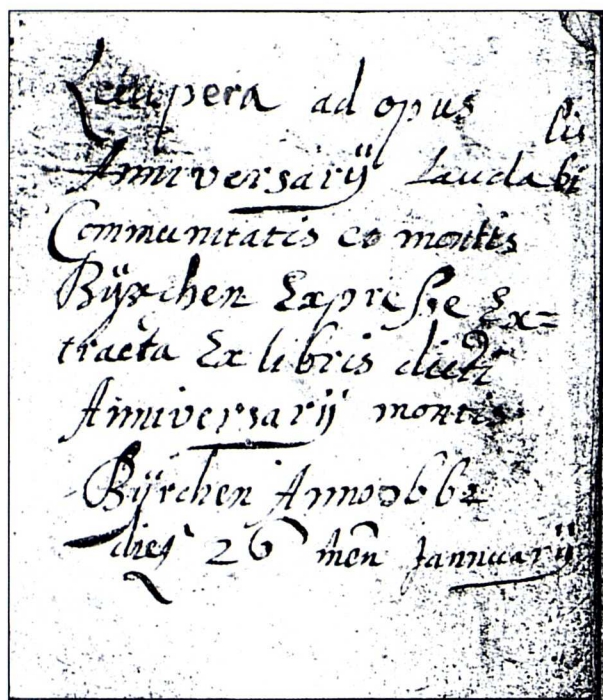 ad opus
Anniversarÿ Laudabi lis
Communitatis et montis
Bÿrchen Expresse Ex=
tracta Ex libris dicti
Anniversarÿ montis
Bÿrchen Anno 1662
dies 26 men Jannuarÿ